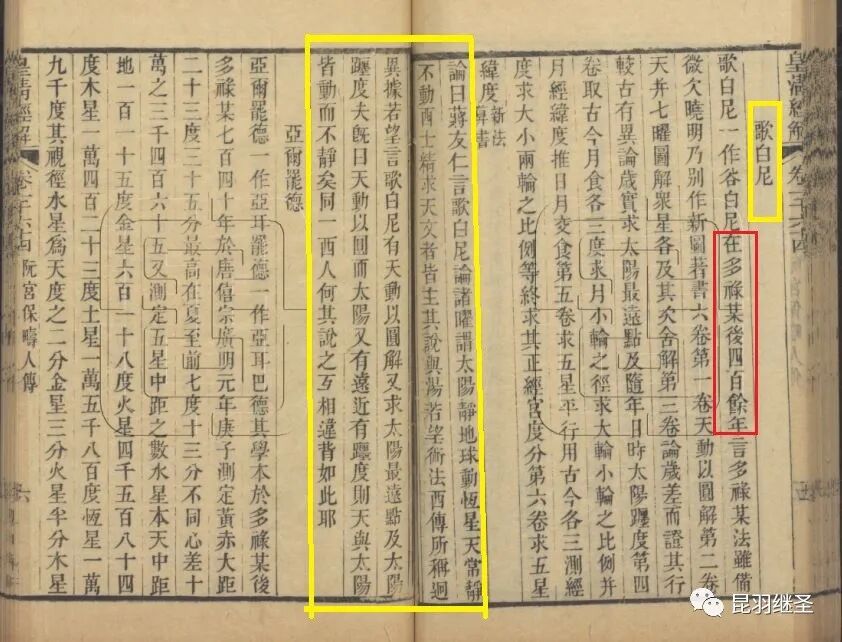 皇清經解
歌白尼
歌白尼一作谷白尼在多祿某後四百餘年言多祿某法雖備
微欠曉明乃別作新圖著書六卷第一卷天動以圜解第二卷
天并七曜圖解眾星各及其次舍解第三卷論歲差而證其行
較古有異論歲實求太陽最遠點及隨年日時太陽躔度第四
卷取古今月食各三度求月小輪之徑求大輪小輪之比例并
月經緯度推日月交食第五卷求五星平行用古今各三測經
度求大小兩輪之比例等終求其正經宮度分第六卷求五星
緯度新法算書
論曰蔣友仁言歌白尼論諸曜謂太陽靜地球動恆星天常靜
不動西士精求天文者皆主其說與湯若望術法西傳所稱迥
異據若望言歌白尼有天動以圜解又求太陽最遠點及太陽
躔度夫旣曰天動以圜而太陽又有遠近有躔度則天與太陽
皆動而不靜矣同一西人何其說之互相違背如此耶
亞爾罷德
亞爾罷德一作亞耳罷德一作亞耳巴德其學本於多祿某後
多祿某七百四十年於唐僖宗廣明元年庚子測定黃赤大距
二十三度三十五分最高在夏至前七度十三分不同心差十
萬之三千四百六十五又測定五星中距之數水星本天中距
地一百一十五度金星六百一十八度火星四千五百八十四
度木星一萬四百二十三度土星一萬五千八百度恆星一萬
九千度其視徑水星爲天度之二分金星三分火星半分木星
皇清經解 卷千六十四 阮宮保疇人傳 六
昆羽继圣